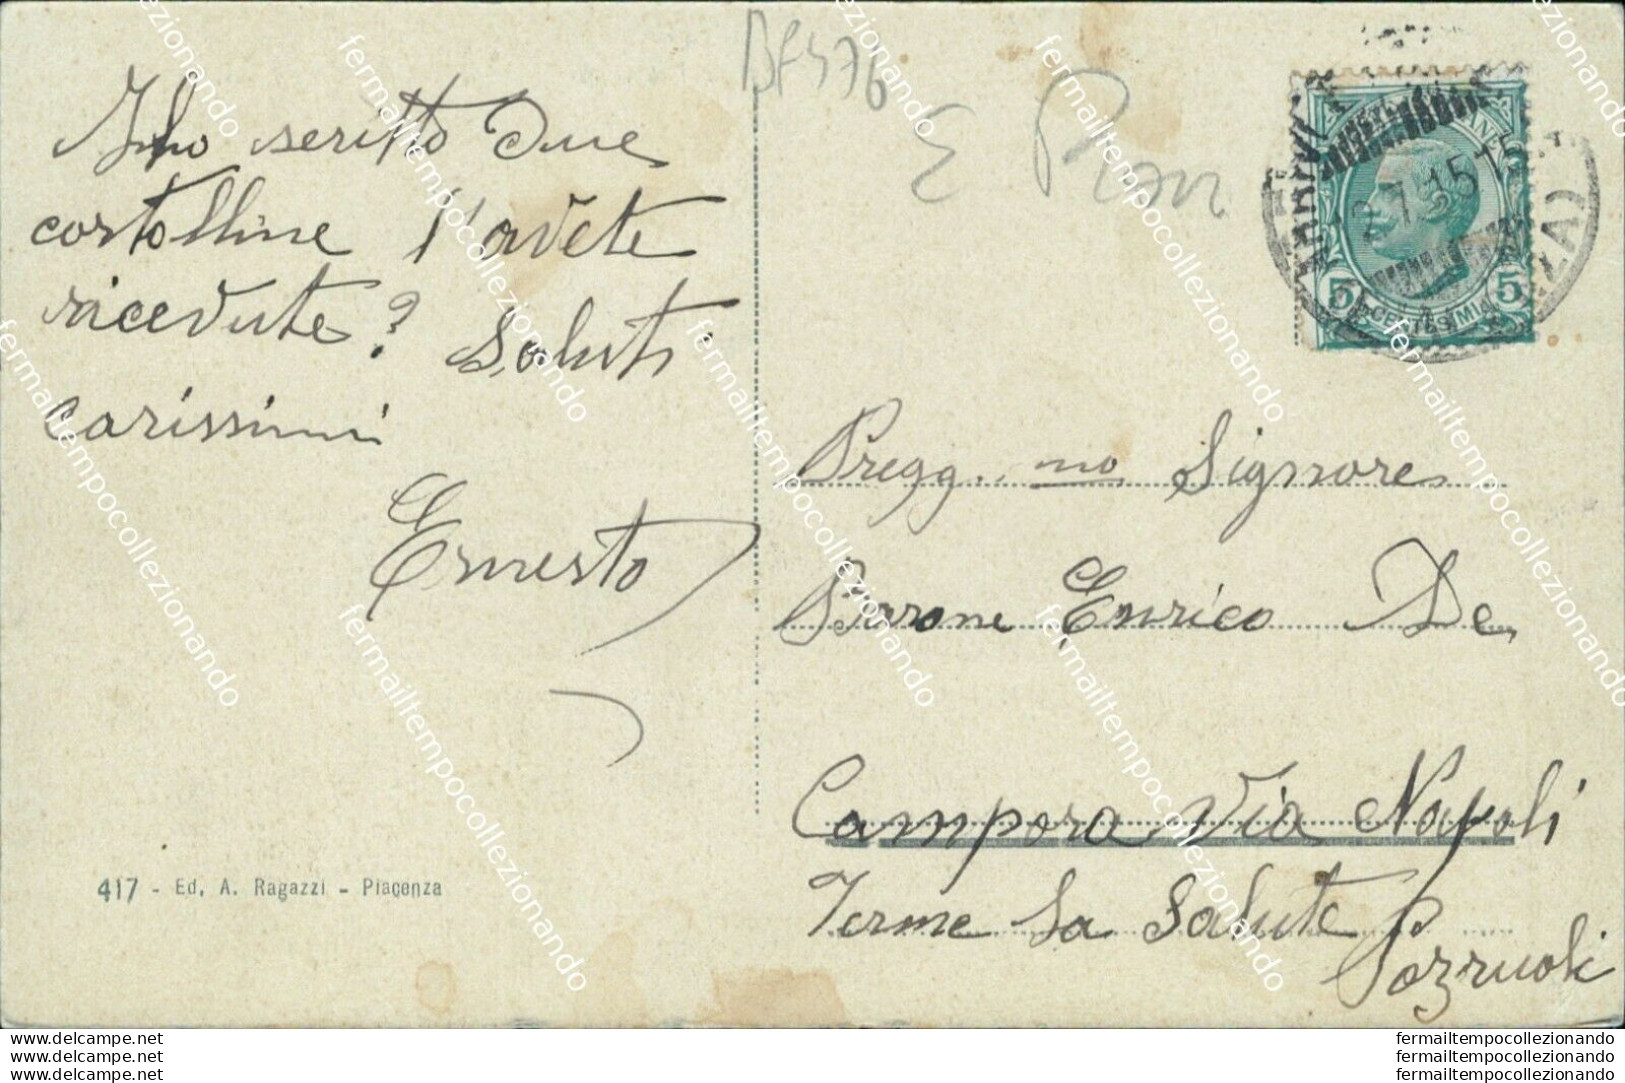 BF476
E Pian
Vi ho scritto due
cartolline l'avete
ricevute? Saluti
carissimi
Ernesto
417 - Ed. A. Ragazzi - Piacenza
12.7.15 15
5 CENTESIMI 5
Pregg.mo Signore
Barone Enrico De
Campora Via Napoli
Terme La Salute
Pozzuoli
www.delcampe.net
www.delcampe.net
www.delcampe.net
fermailtempocollezionando
fermailtempocollezionando
fermailtempocollezionando